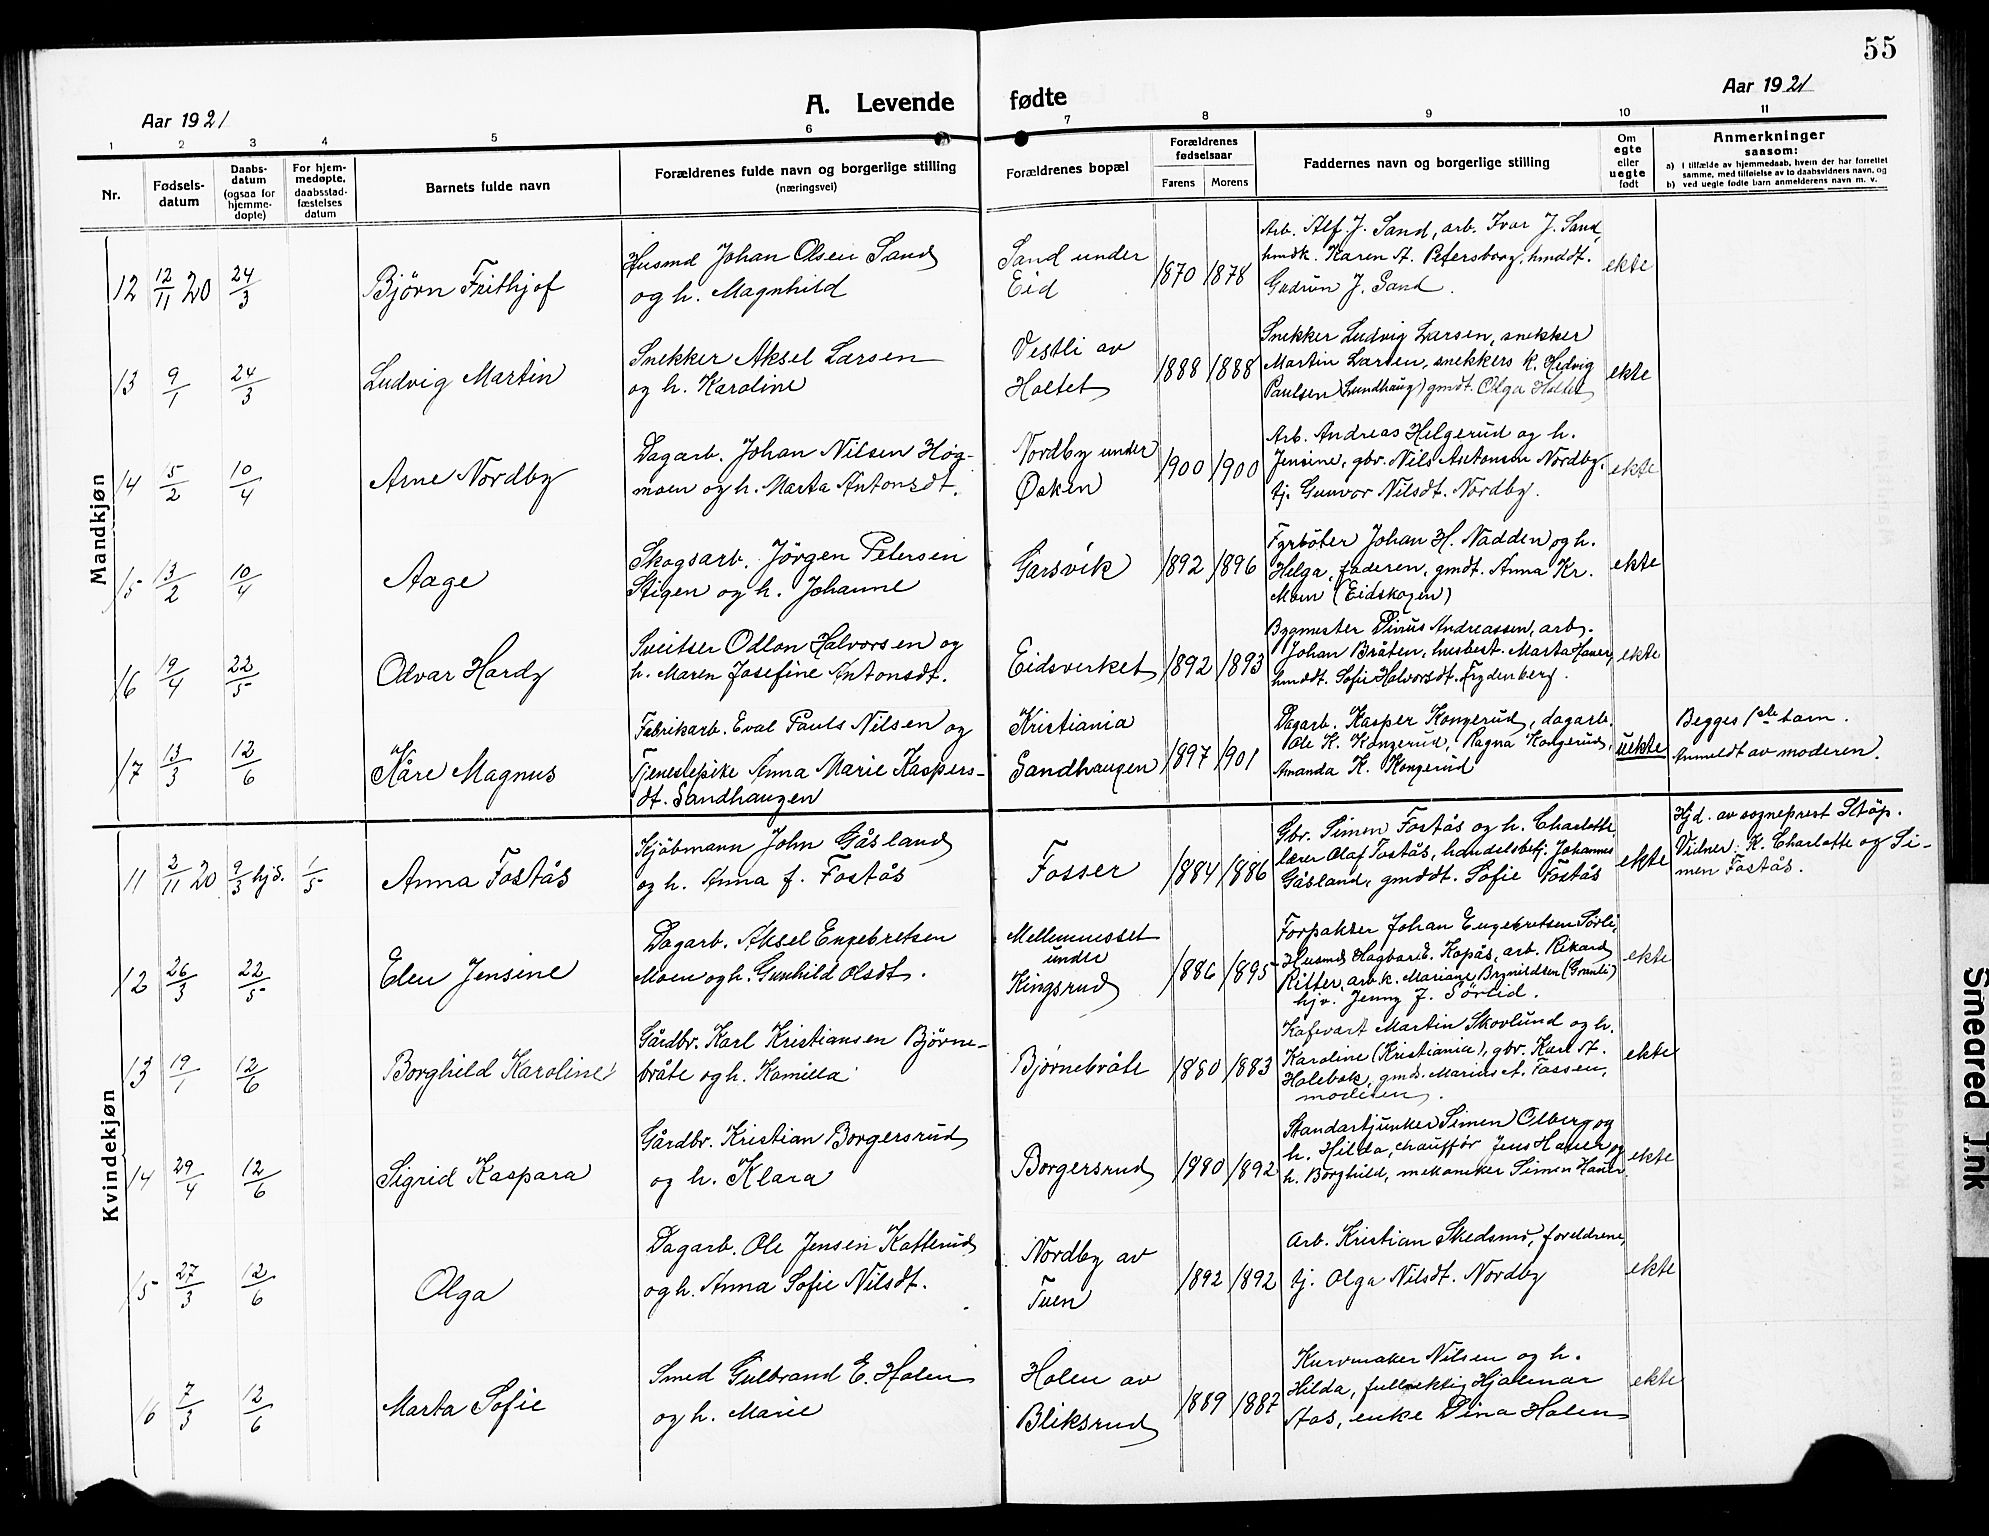 55
Aar 1921
A. Levende fødte
Aar 1921
1 2 3 4 5 6 7 8 9 10 11
Nr.
Fødsels-
datum
Daabs-
datum
(ogsaa for
hjemme-
døpte)
For hjem-
medøpte,
daabsstad-
fæstelses
datum
Barnets fulde navn
Forældrenes fulde navn og borgerlige stilling
(næringsvei)
Forældrenes bopæl
Forældrenes
fødselsaar
Farens Morens
Faddernes navn og borgerlige stilling
Om
egte
eller
uegte
født
Anmerkninger
saasom:
a) I tilfælde av hjemmedaab, hvem der har forrettet
samme, med tilføielse av to daabsvidners navn, og
b) ved uegte fødte barn anmelderens navn m. v.
Mandkjøn
12 12/11 20 24/3
Bjørn Frithjof
Husmd Johan Olsen Sand
og h. Magnhild
Sand under
Eid
1870 1878
Arb. Alf J. Sand, arb. Ivar J. Sand,
hmdk. Karen A. Petersborg, hmddt.
Gudrun J. Sand.
ekte
13 9/1 24/3
Ludvig Martin
Snekker Aksel Larsen
og h. Karoline
Vestli av
Holtet
1888 1888
Snekker Ludvig Larsen, snekker
Martin Larsen, snekkers k. Hedvig
Paulsen (Lundhaug) gmdt. Olga Holtet
ekte
14 15/2 10/4
Arne Nordby
Dagarb. Johan Nilsen Høg-
moen og h. Marta Antonsdt.
Nordby under
Østen
1900 1900
Arb. Andreas Helgerud og h.
Jensine, gbr. Nils Antonsen Nordby.
tj. Gunvor Nilsdt. Nordby.
ekte
15 13/2 10/4
Aage
Skogsarb. Jörgen Petersen
Stigen og h. Johanne
Garsvik
1892 1896
Fyrböter Johan H. Nadden og h.
Helga, faderen, gmdt. Anna Kr.
Moen (Eidskogen)
ekte
16 19/4 22/5
Olvar Hardy
Sveitser Odlon Halvorsen og
h. Maren Josefine Antonsdt.
Eidsverket
1892 1893
Bygmester Divus Andreassen, arb.
Johan Bråten, husbest. Marta Haner,
hmddt. Sofie Halvorsdt. Frydenberg.
ekte
17 13/3 12/6
Kåre Magnus
Fabrikarb. Eval Pauls Nilsen og
Tjenestepike Anna Marie Kaspers-
dt. Sandhaugen
Kristiania
Sandhaugen
1897 1901
Dagarb. Kasper Kongerud, dagarb.
Ole K. Kongerud, Ragna Kongerud,
Amanda K. Kongerud
uekte
Begges 1ste barn.
Anmeldt av moderen.
Kvindekjøn
11 2/11 20 9/3 hjd. 1/5
Anna Fostås
Kjöbmann John Gåsland
og h. Anna f. Fostås
Fosser
1884 1886
Gbr. Simen Fostås og h. Charlotte,
lærer Olaf Fostås, handelsbetj. Johannes
Gåsland, gmddt. Sofie Fostås
ekte
Hjd. av sogneprest Støp.
Vidner: K. Charlotte og Si-
men Fostås.
12 26/3 22/5
Elen Jensine
Dagarb. Aksel Engebretsen
Moen og h. Gunhild Olsdt.
Mellemnesset
under
Kingsrud
1886 1895
Forpakter Johan Engebretsen Sörli,
Husmd Hagbart E. Kopås, arb. Rikard
Ritter, arb.k. Mariane Brynildsen (Granli)
hjv. Jenny J. Sörlid.
ekte
13 19/1 12/6
Borghild Karoline
Gårdbr. Karl Kristiansen Bjørne-
bråte og h. Kamilla
Bjørnebråte
1880 1883
Kafevart Martin Skovlund og h.
Karoline (Kristiania), gbr. Karl A.
Holebøk, gmds. Marius A. Fossen,
moderen.
ekte
14 29/4 12/6
Sigrid Kaspara
Gårdbr. Kristian Borgersrud
og h. Klara
Borgersrud
1880 1892
Standartjunker Simen Olberg og
h. Hilda, chauffør Jens Haner og
h. Borghild, mekaniker Simen Haner
ekte
15 27/3 12/6
Olga
Dagarb. Ole Jensen Katterud
og h. Anna Sofie Nilsdt.
Nordby av
Tuen
1892 1892
Arb. Kristian Skedsmo, foreldrene,
tj. Olga Nilsdt. Nordby
ekte
16 7/3 12/6
Marta Sofie
Smed Gulbrand E. Holen
og h. Marie
Holen av
Bliksrud
1889 1887
Kurvmaker Nilsen og h.
Hilda, fullmektig Hjalmar
Aas, enke Dina Holen
ekte
Smeared Ink